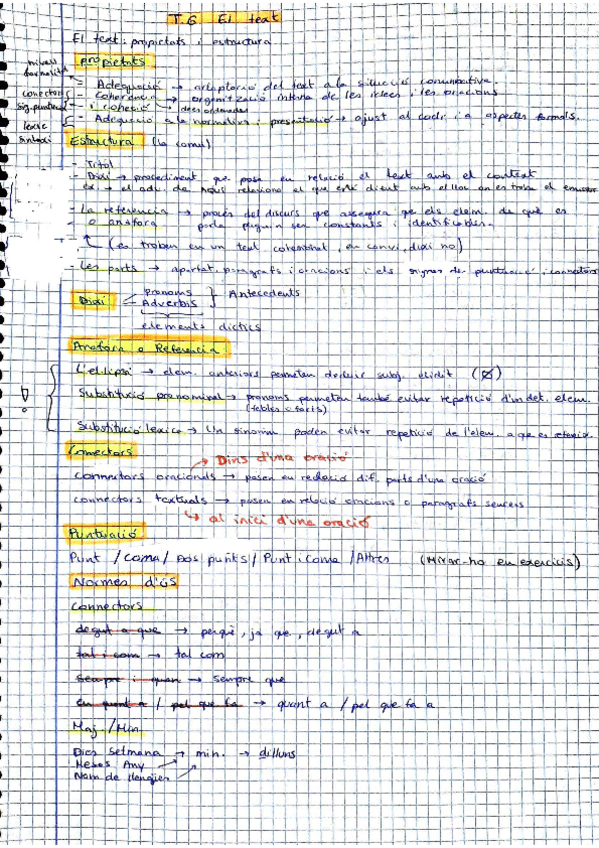 T.6 El text
El text: propietats i estructura
propietats
- Adequació → adaptació del text a la situació comunicativa.
- Coherència → organització interna de les idees i les oracions
- i cohesió → des ordenades
- Adequació a la normativa i presentació → ajust al codi i a aspectes formals.
nivell formalitat
connectors
sig. puntuació
lèxic
sintaxi
Estructura (la comú)
- Títol
- Dixi → procediment que posa en relació el text amb el context
ex: → el adv. de aquí relaciona el que està dient amb el lloc on es troba el emissor
- La referència → procés del discurs que assegura que els elem. de què es
o anàfora parla puguin ser constants i identificables.
(es troben en un text cotextual, en canvi, dixi no)
- Les parts → apartat, paragrafs i oracions i els signes de puntuació i connectors
Dixi Pronoms
Adverbis } Antecedents
elements díctics
Anafora o Referencia
L'el·lipsi → elem. anteriors permeten deduir subj. elidit (∅)
Substitució pronominal → pronoms permeten també evitar repetició d'un det. elem.
(febles o forts)
Substitució lèxica → Un sinònim poden evitar repetició de l'elem. a que es refereix.
Connectors
→ Dins d'una oració
connectors oracionals → posen en relació dif. parts d'una oració
connectors textuals → posen en relació oracions o paragrafs sencers
↳ al inici d'una oració
Puntuació
Punt / coma / Dos punts / Punt i Coma / Altres (Mirar-ho en exercicis)
Normes d'ús
connectors
degut a que → perquè, ja que, degut a
tal i com → tal com
sempre i quan → sempre que
en quant a / pel que fa → quant a / pel que fa a
Maj. / Min.
Dies Setmana → min. → dilluns
Mesos Any
Nom de llengües